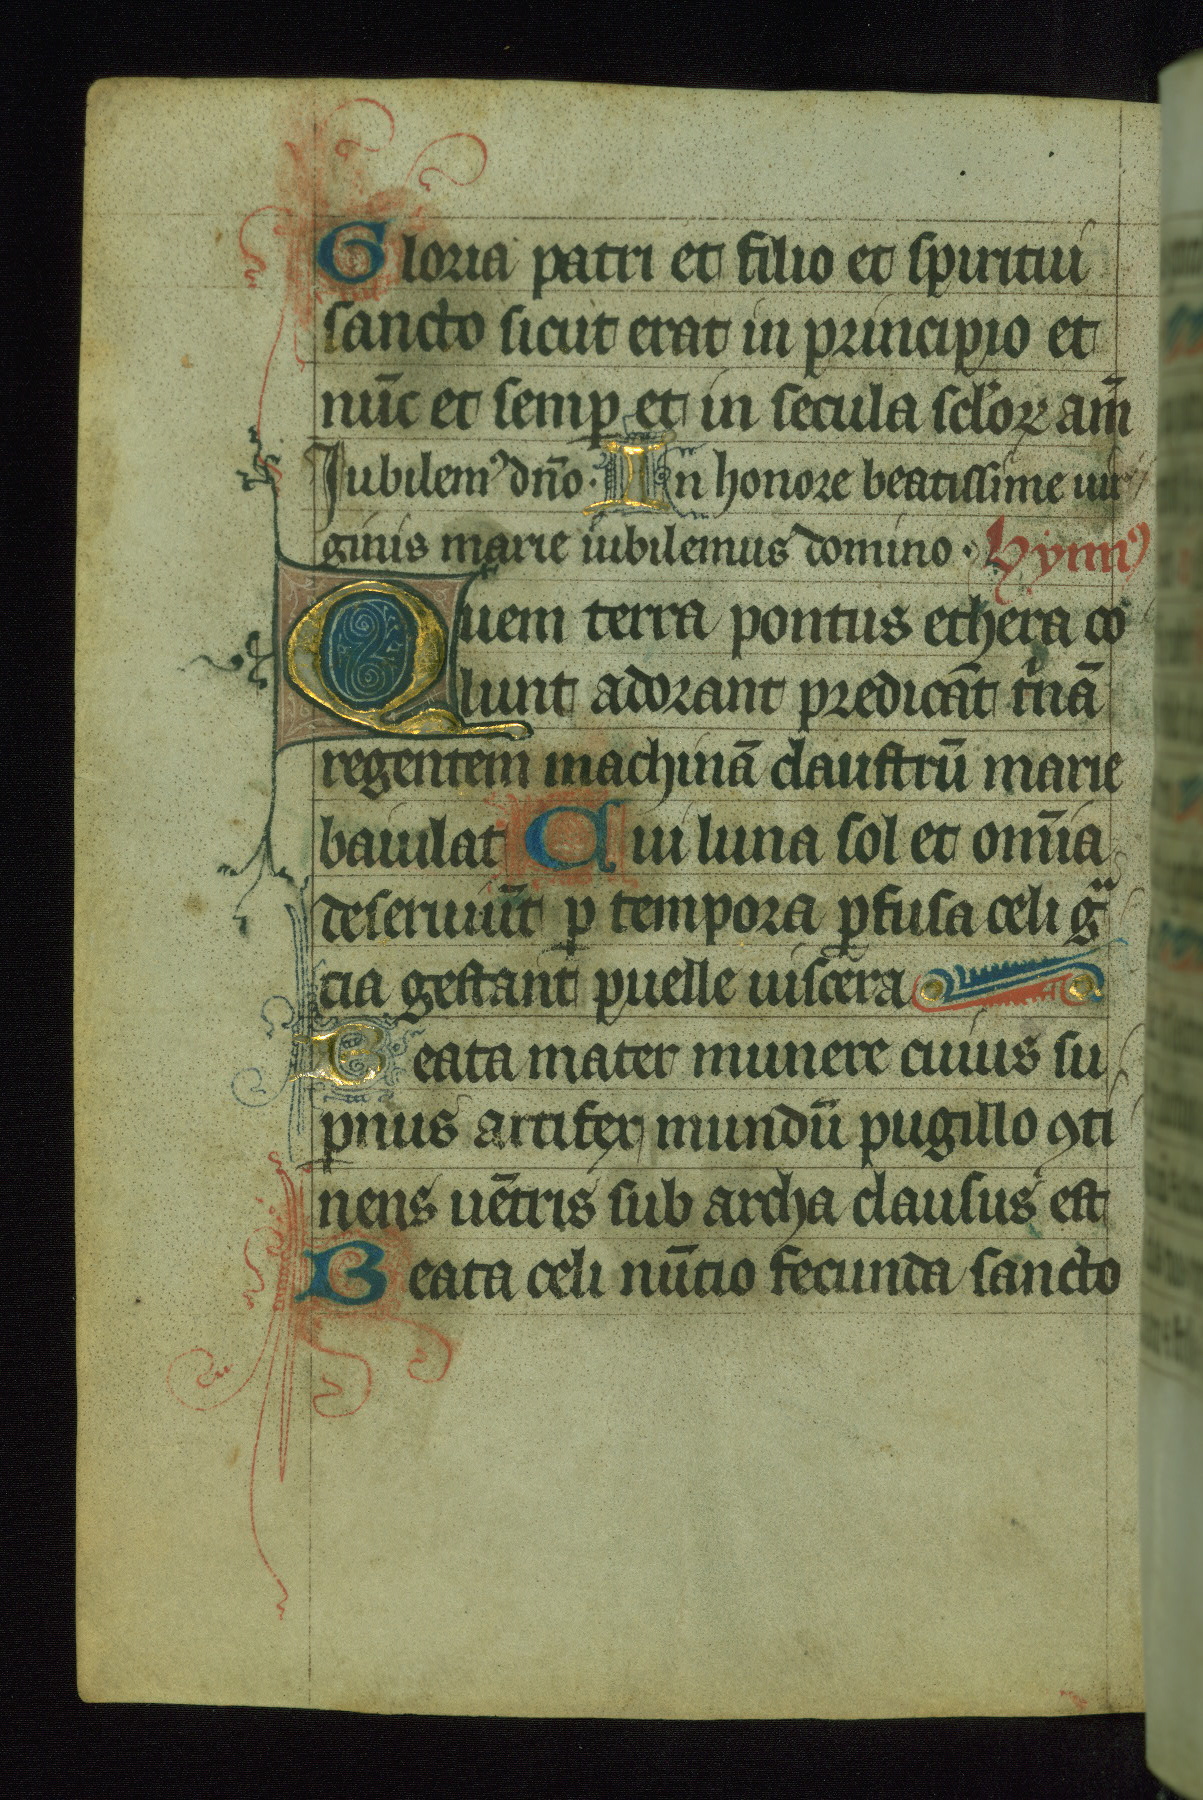 Gloria patri et filio et spiritui
sancto sicut erat in principio et
nūc et semꝑ et in secula sclõꝝ am̄
Jubilemꝰ dño. In honore beatissime uir
ginis marie iubilemus domino. Hymnꝰ
Quem terra pontus ethera co
lunt adorant predicāt t'nā
regentem machinā claustrū marie
baiulat Cui luna sol et om̄ia
deseruiūt ꝑ tempora ꝑfusa celi gͣ
cia gestant puelle uiscera
Beata mater munere cuius su
ꝑnus artifex mundū pugillo ꝯti
nens uētris sub archa clausus est
Beata celi nūtio fecunda sancto